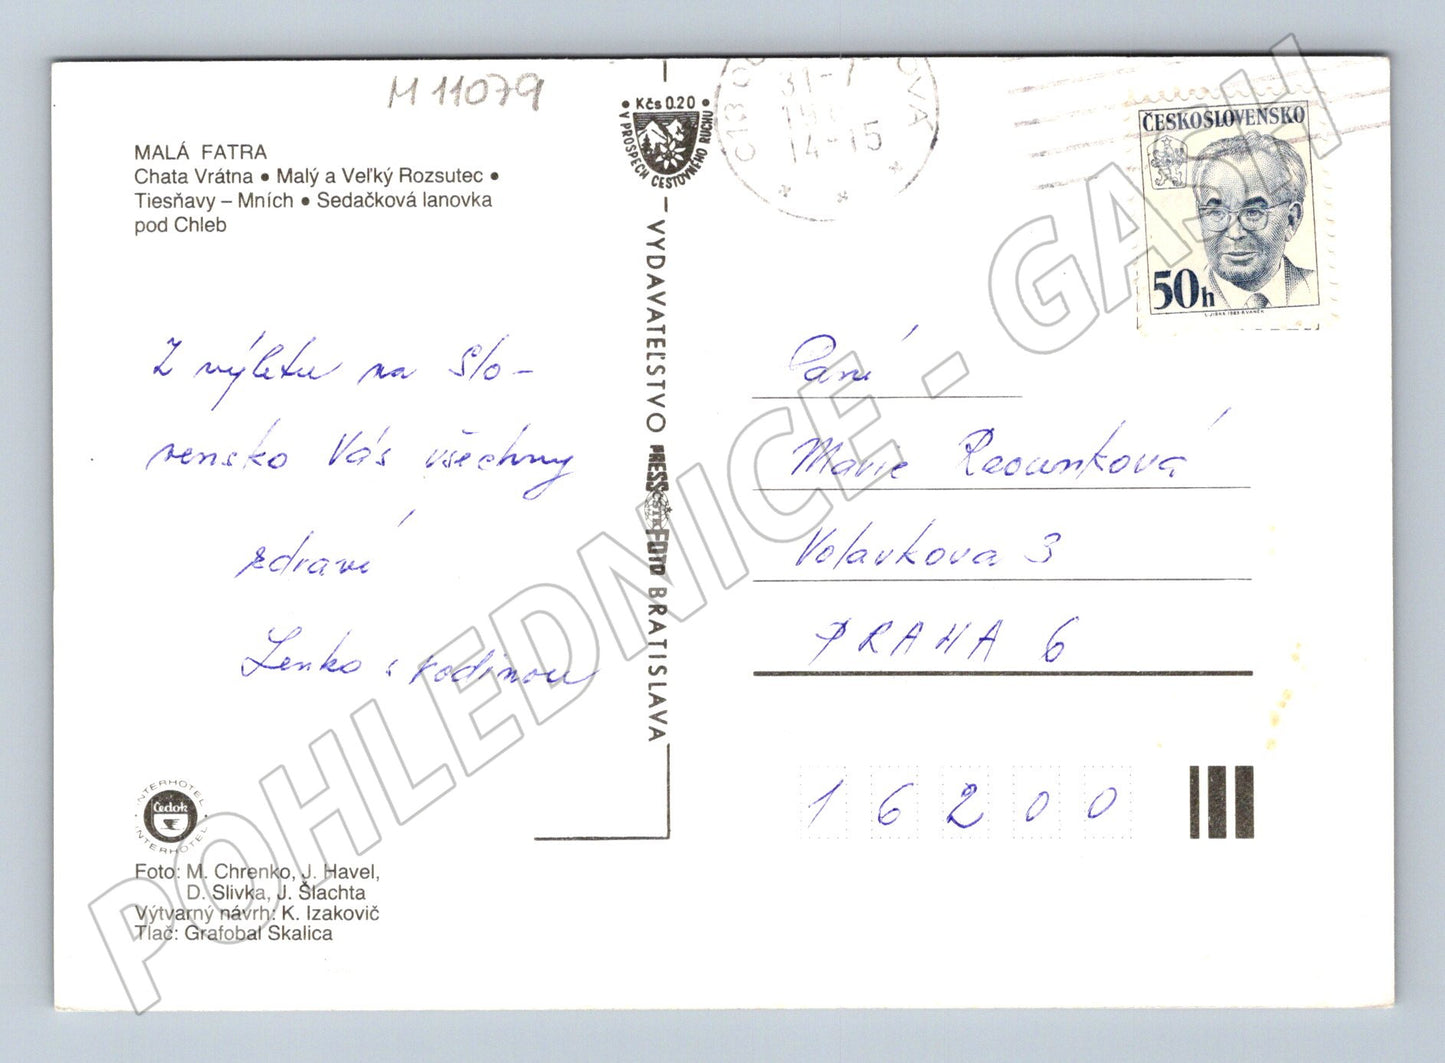 M 11079
MALÁ FATRA
Chata Vrátna • Malý a Veľký Rozsutec •
Tiesňavy – Mních • Sedačková lanovka
pod Chleb
Z výletu na Slo-
vensko Vás všechny
zdraví
Lenka s rodinou
INTERHOTEL
Čedok
INTERHOTEL
Foto: M. Chrenko, J. Havel,
D. Slivka, J. Šlachta
Výtvarný návrh: K. Izakovič
Tlač: Grafobal Skalica
• Kčs 0.20 •
V PROSPECH CESTOVNÉHO RUCHU
VYDAVATEĽSTVO PRESSFOTO BRATISLAVA
ČSTK
31-7
14-15
ČESKOSLOVENSKO
50h
Paní
Marie
Volavkova 3
PRAHA 6
16200
POHLEDNICE - GASH